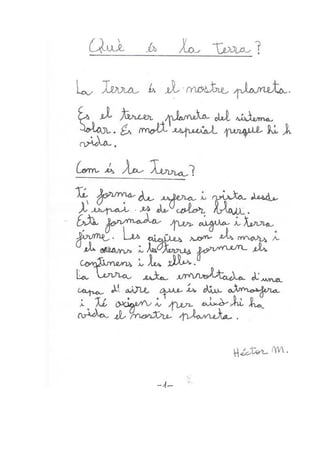 Què és la Terra?
La Terra és el nostre planeta.
És el tercer planeta del sistema
Solar. És molt especial perquè hi h
vida.
Com és la Terra?
Té forma de esfera i vista desde
l'espai es de color blau.
Està formada per aigua i terra
firme. Les aigües son els mars i
els oceans i les terres formen els
continens i les illes.
La Terra esta envoltada d'una
capa d'aire que és diu atmosfera
i té oxigen i per això hi ha
vida el nostre planeta.
Héctor M.
-1-